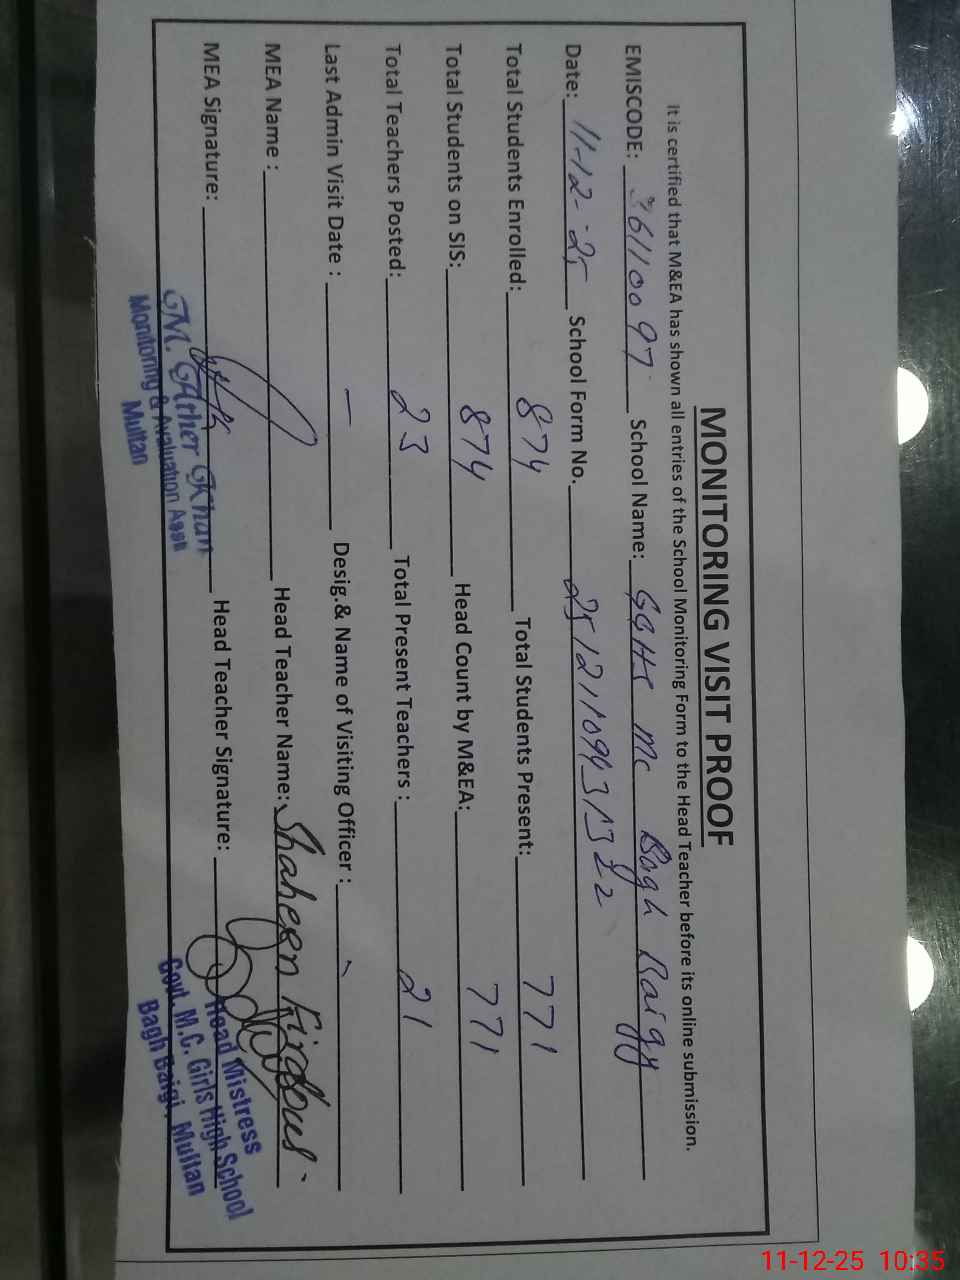 MONITORING VISIT PROOF
It is certified that M&EA has shown all entries of the School Monitoring Form to the Head Teacher before its online submission.
EMISCODE: 36110097 School Name: GGHS MC Bagh Baigy
Date: 11-12-25 School Form No.
Total Students Enrolled: 874 Total Students Present: 771
Total Students on SIS: 874 Head Count by M&EA: 771
Total Teachers Posted: 23 Total Present Teachers : 21
Last Admin Visit Date : — Desig.& Name of Visiting Officer :
MEA Name : Head Teacher Name: Shaheen Firdous
MEA Signature: Head Teacher Signature:
Monitoring & Avaluation Asst
Multan
Head Mistress
Govt. M.C. Girls High School
Bagh Baigi, Multan
11-12-25 10:35